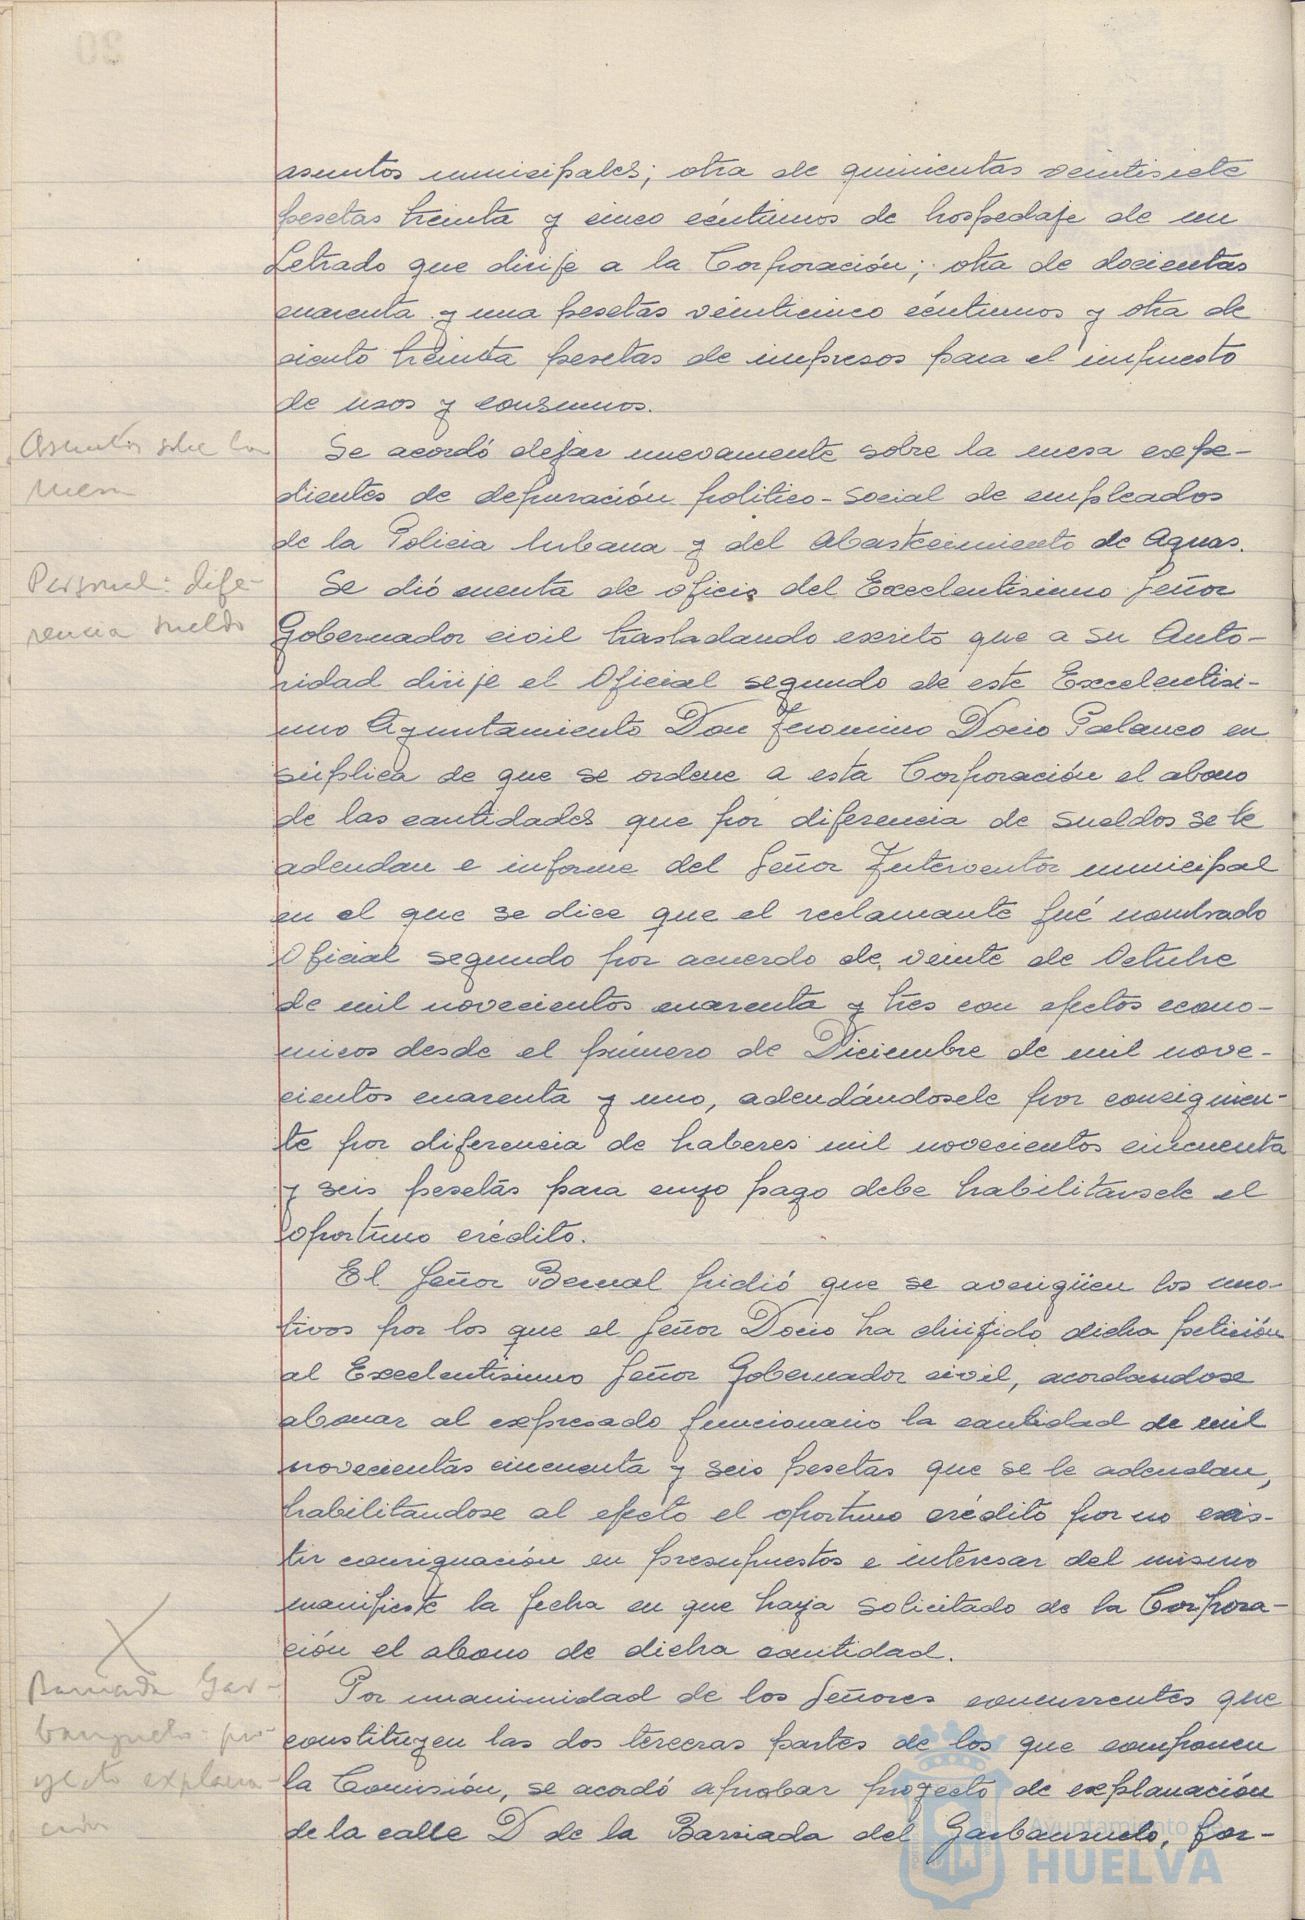 asuntos municipales; otra de quinientas veintisiete
pesetas treinta y cinco céntimos de hospedaje de un
Letrado que dirije a la Corporación; otra de docientas
cuarenta y una pesetas veinticinco céntimos y otra de
ciento treinta pesetas de impresos para el impuesto
de usos y consumos.
Asuntos sobre la
mesa
Se acordó dejar nuevamente sobre la mesa expe-
dientes de depuración politico-social de empleados
de la Policia Urbana y del Abastecimiento de Aguas.
Personal: dife-
rencia sueldo
Se dió cuenta de oficio del Excelentisimo Señor
Gobernador civil trasladando escrito que a su Auto-
ridad dirije el Oficial segundo de este Excelentisi-
mo Ayuntamiento Don Jeronimo Docio Palanco en
súplica de que se ordene a esta Corporación el abono
de las cantidades que por diferencia de sueldos se le
adeudan e informe del Señor Interventor municipal
en el que se dice que el reclamante fué nombrado
Oficial segundo por acuerdo de veinte de Octubre
de mil novecientos cuarenta y tres con efectos econo-
micos desde el primero de Diciembre de mil nove-
cientos cuarenta y uno, adeudándosele por consiguien-
te por diferencia de haberes mil novecientos cincuenta
y seis pesetas para cuyo pago debe habilitarsele el
oportuno crédito.
El Señor Bernal pidió que se averigüen los mo-
tivos por los que el Señor Docio ha dirijido dicha petición
al Excelentisimo Señor Gobernador civil, acordandose
abonar al expresado funcionario la cantidad de mil
novecientas cincuenta y seis pesetas que se le adeudan,
habilitandose al efecto el oportuno crédito por no exis-
tir consignación en presupuestos e interesar del mismo
manifieste la fecha en que haya solicitado de la Corpora-
ción el abono de dicha cantidad.
Barriada Gar-
banzuelo-pro-
yecto explana-
ción
Por unanimidad de los Señores concurrentes que
constituyen las dos terceras partes de los que componen
la Comisión, se acordó aprobar proyecto de explanación
de la calle D de la Barriada del Garbanzuelo, for-
Ayuntamiento de
HUELVA